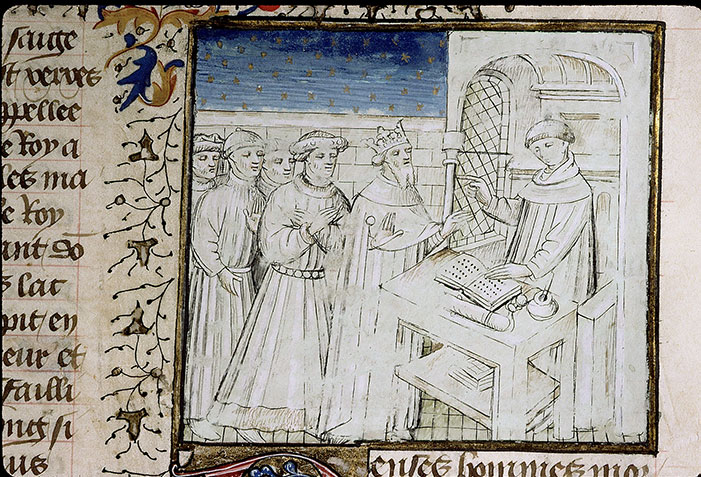 saige
st verves
ppellee
e Roy a
les ma
le Roy
ant do
s lat
pit en
eur et
failli
ung si
us
euses hommes mou